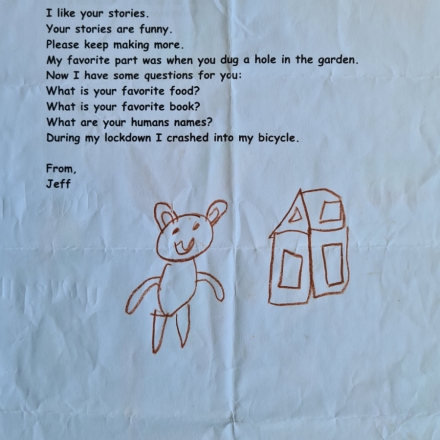 I like your stories.
Your stories are funny.
Please keep making more.
My favorite part was when you dug a hole in the garden.
Now I have some questions for you:
What is your favorite food?
What is your favorite book?
What are your humans names?
During my lockdown I crashed into my bicycle.
From,
Jeff